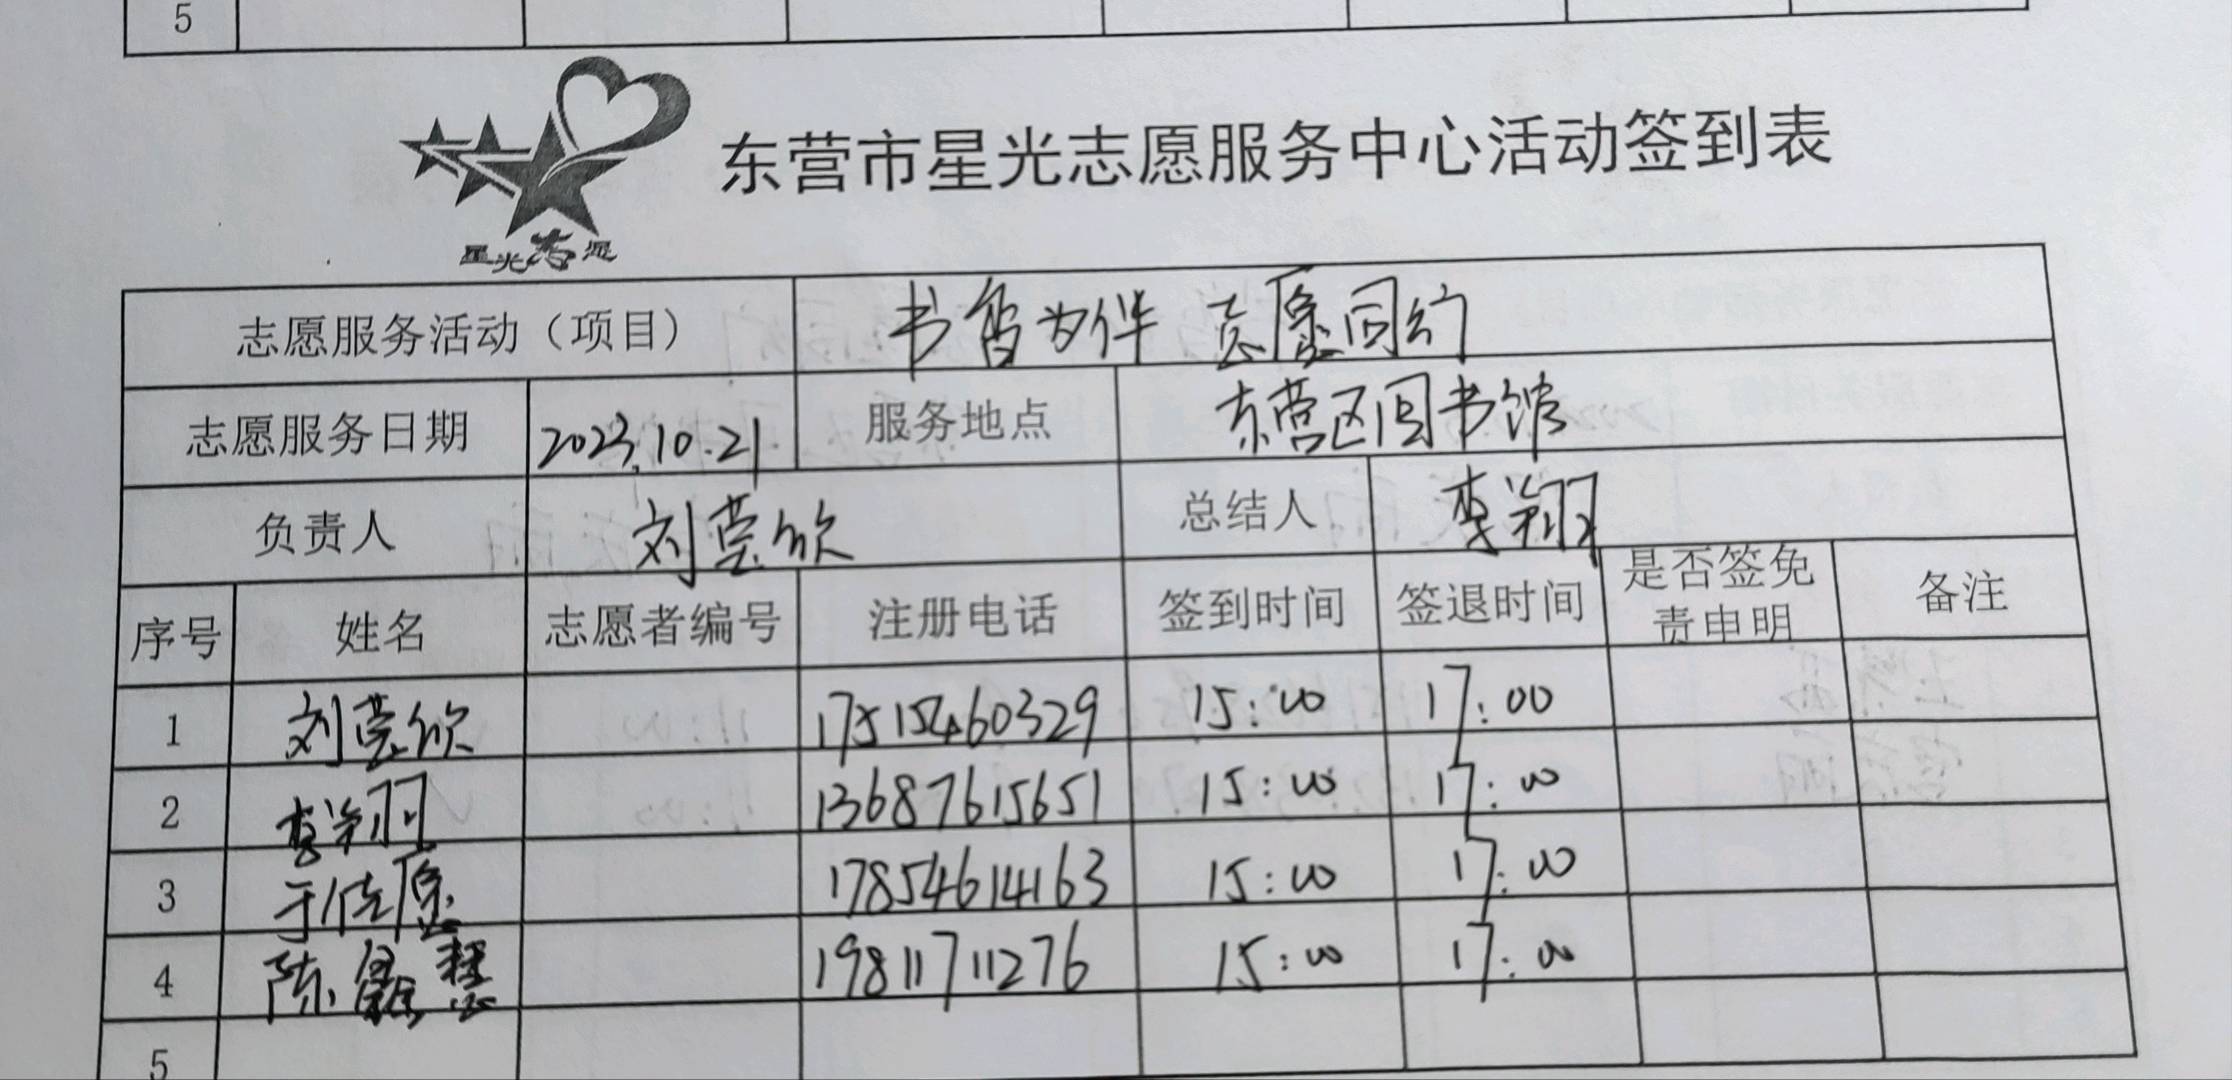 5
东营市星光志愿服务中心活动签到表
星光志愿
志愿服务活动（项目） 书香为伴 志愿同行
志愿服务日期 2023.10.21 服务地点 东营区图书馆
负责人 刘莹欣 总结人 李翔
序号 姓名 志愿者编号 注册电话 签到时间 签退时间 是否签免责申明 备注
1 刘莹欣 17515460329 15:00 17:00
2 李翔 13687615651 15:00 17:00
3 于佳愿 17854614163 15:00 17:00
4 陈 慧 19811711276 15:00 17:00
5